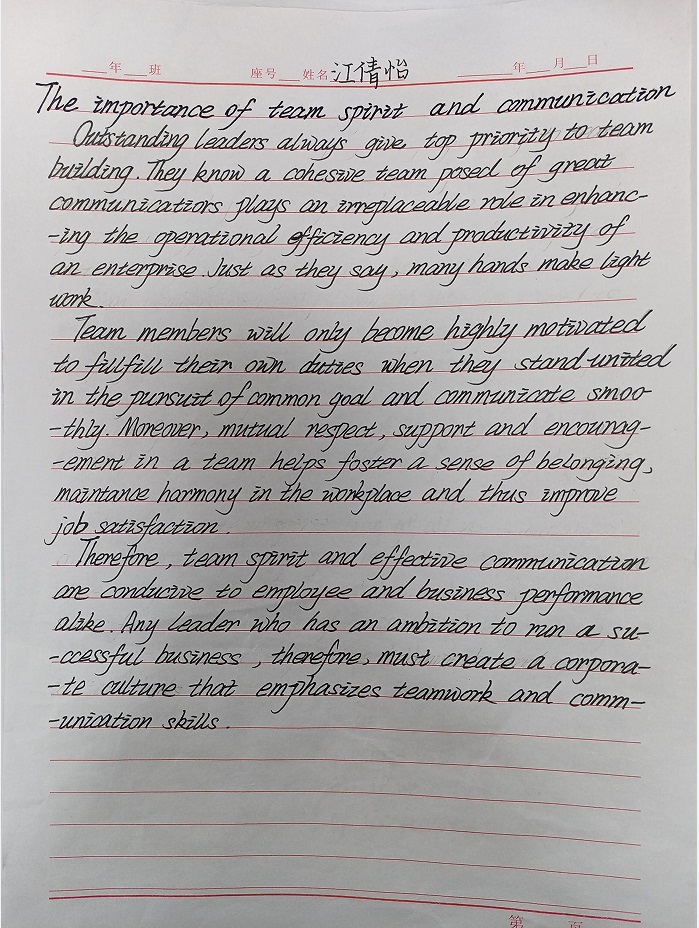 年 班 座号 姓名 江倩怡 年 月 日
The importance of team spirit and communication
Outstanding leaders always give top priority to team
building. They know a cohesive team posed of great
communicatiors plays an irreplaceable role in enhanc-
-ing the operational efficiency and productivity of
an enterprise. Just as they say, many hands make light
work.
Team members will only become highly motivated
to fillfill their own duties when they stand united
in the pursuit of common goal and communicate smoo-
-thly. Moreover, mutual respect, support and encourag-
-ement in a team helps foster a sense of belonging,
maintance harmony in the workplace and thus improve
job satisfaction.
Therefore, team spirit and effective communication
are conducive to employee and business performance
alike. Any leader who has an ambition to run a su-
-ccessful business, therefore, must create a corpora-
-te culture that emphasizes teamwork and comm-
-unication skills.
第 页